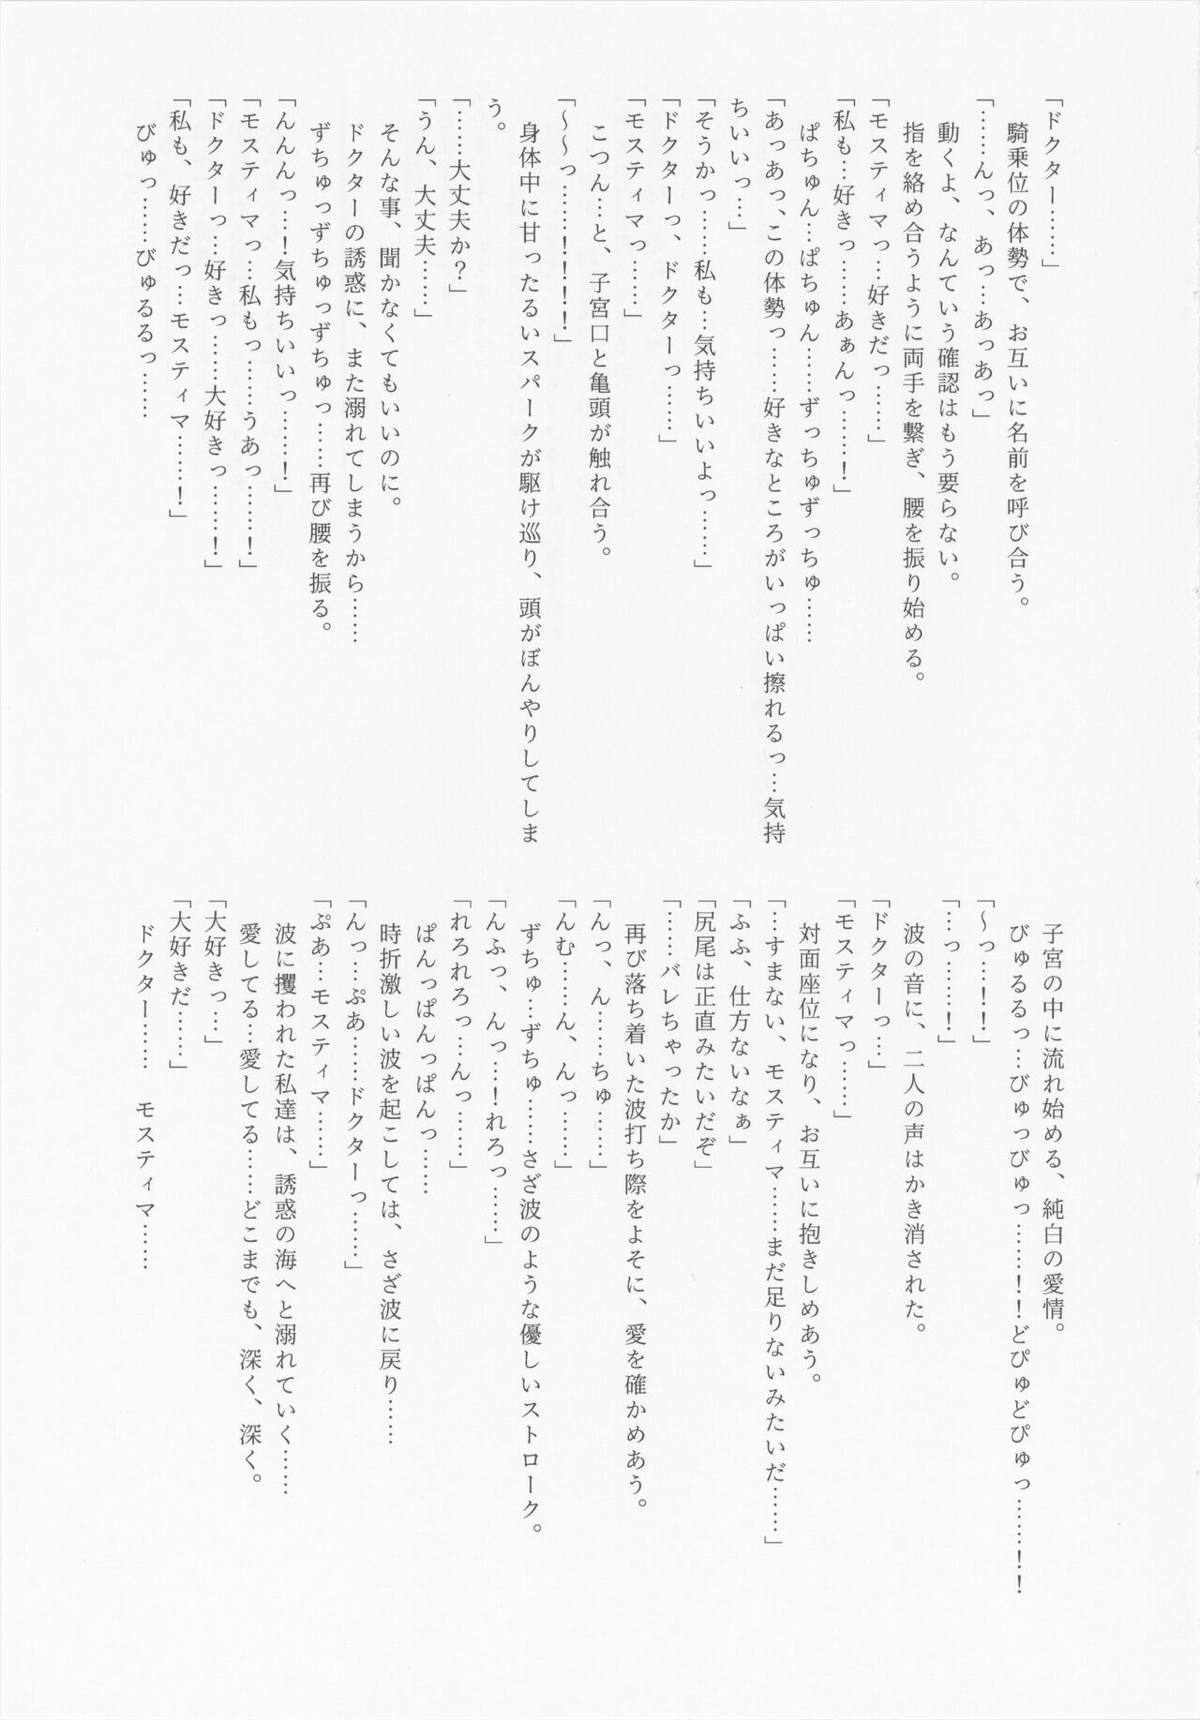 「ドクター……」
騎乗位の体勢で、お互いに名前を呼び合う。
「……んっ、あっ…あっあっ」
動くよ、なんていう確認はもう要らない。
指を絡め合うように両手を繋ぎ、腰を振り始める。
「モスティマっ…好きだっ……」
「私も…好きっ……あぁんっ……！」
ぱちゅん…ぱちゅん……ずっちゅずっちゅ……
「あっあっ、この体勢っ……好きなところがいっぱい擦れるっ…気持
ちいいっ…」
「そうかっ……私も…気持ちいいよっ……」
「ドクターっ、ドクターっ……」
「モスティマっ……」
こつん…と、子宮口と亀頭が触れ合う。
「～～っ……！！！！」
身体中に甘ったるいスパークが駆け巡り、頭がぼんやりしてしま
う。
「……大丈夫か？」
「うん、大丈夫……」
そんな事、聞かなくてもいいのに。
ドクターの誘惑に、また溺れてしまうから……
ずちゅっずちゅっずちゅっ……再び腰を振る。
「んんんっ…！気持ちいいっ……！」
「モスティマっ…私もっ……うあっ……！」
「ドクターっ…好きっ……大好きっ……！」
「私も、好きだっ…モスティマ……！」
びゅっ……びゅるるっ……
子宮の中に流れ始める、純白の愛情。
びゅるるっ…びゅっびゅっ……！！どぴゅどぴゅっ……！！
「～っ…！！」
「…っ……！」
波の音に、二人の声はかき消された。
「ドクターっ…」
「モスティマっ……」
対面座位になり、お互いに抱きしめあう。
「…すまない、モスティマ……まだ足りないみたいだ……」
「ふふ、仕方ないなぁ」
「尻尾は正直みたいだぞ」
「……バレちゃったか」
再び落ち着いた波打ち際をよそに、愛を確かめあう。
「んっ、ん……ちゅ……」
「んむ……ん、んっ……」
ずちゅ…ずちゅ……さざ波のような優しいストローク。
「んふっ、んっ…！れろっ……」
「れろれろっ…んっ……」
ぱんっぱんっぱんっ……
時折激しい波を起こしては、さざ波に戻り……
「んっ…ぷあ……ドクターっ……」
「ぷあ…モスティマ……」
波に攫われた私達は、誘惑の海へと溺れていく……
愛してる…愛してる……どこまでも、深く、深く。
「大好きっ…」
「大好きだ……」
ドクター……　モスティマ……